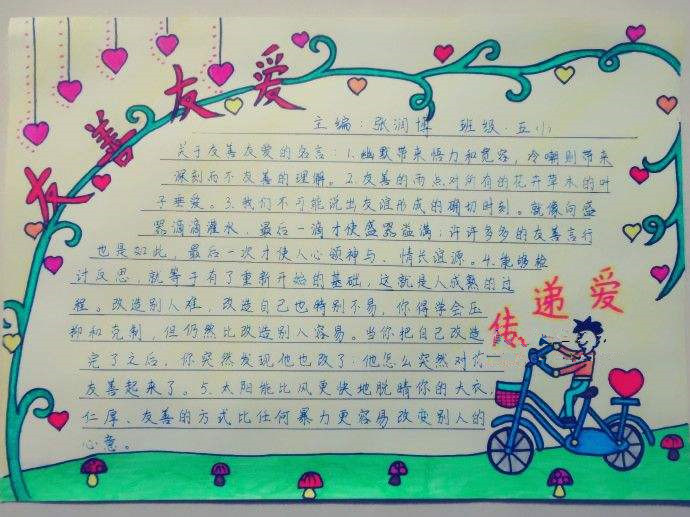 友善友爱
主编:张润博 班级:五(1)
关于友善友爱的名言:1.幽默带来悟力和宽容,冷嘲则带来
深刻而不友善的理解。2.友善的雨点对所有的花卉草木的叶
子垂爱。3.我们不可能说出友谊形成的确切时刻。就像向盛
器滴滴灌水,最后一滴才使盛器溢满;许许多多的友善言行
也是如此,最后一次才使人心领神与、情长谊源。4.能够检
讨反思,就等于有了重新开始的基础,这就是人成熟的过
程。改造别人难,改造自己也特别不易,你得学会压
抑和克制,但仍然比改造别人容易。当你把自己改造
完了之后,你突然发现他也改了;他怎么突然对你
友善起来了。5.太阳能比风更快地脱晴你的大衣,
仁厚、友善的方式比任何暴力更容易改变别人的
心意。
传递爱